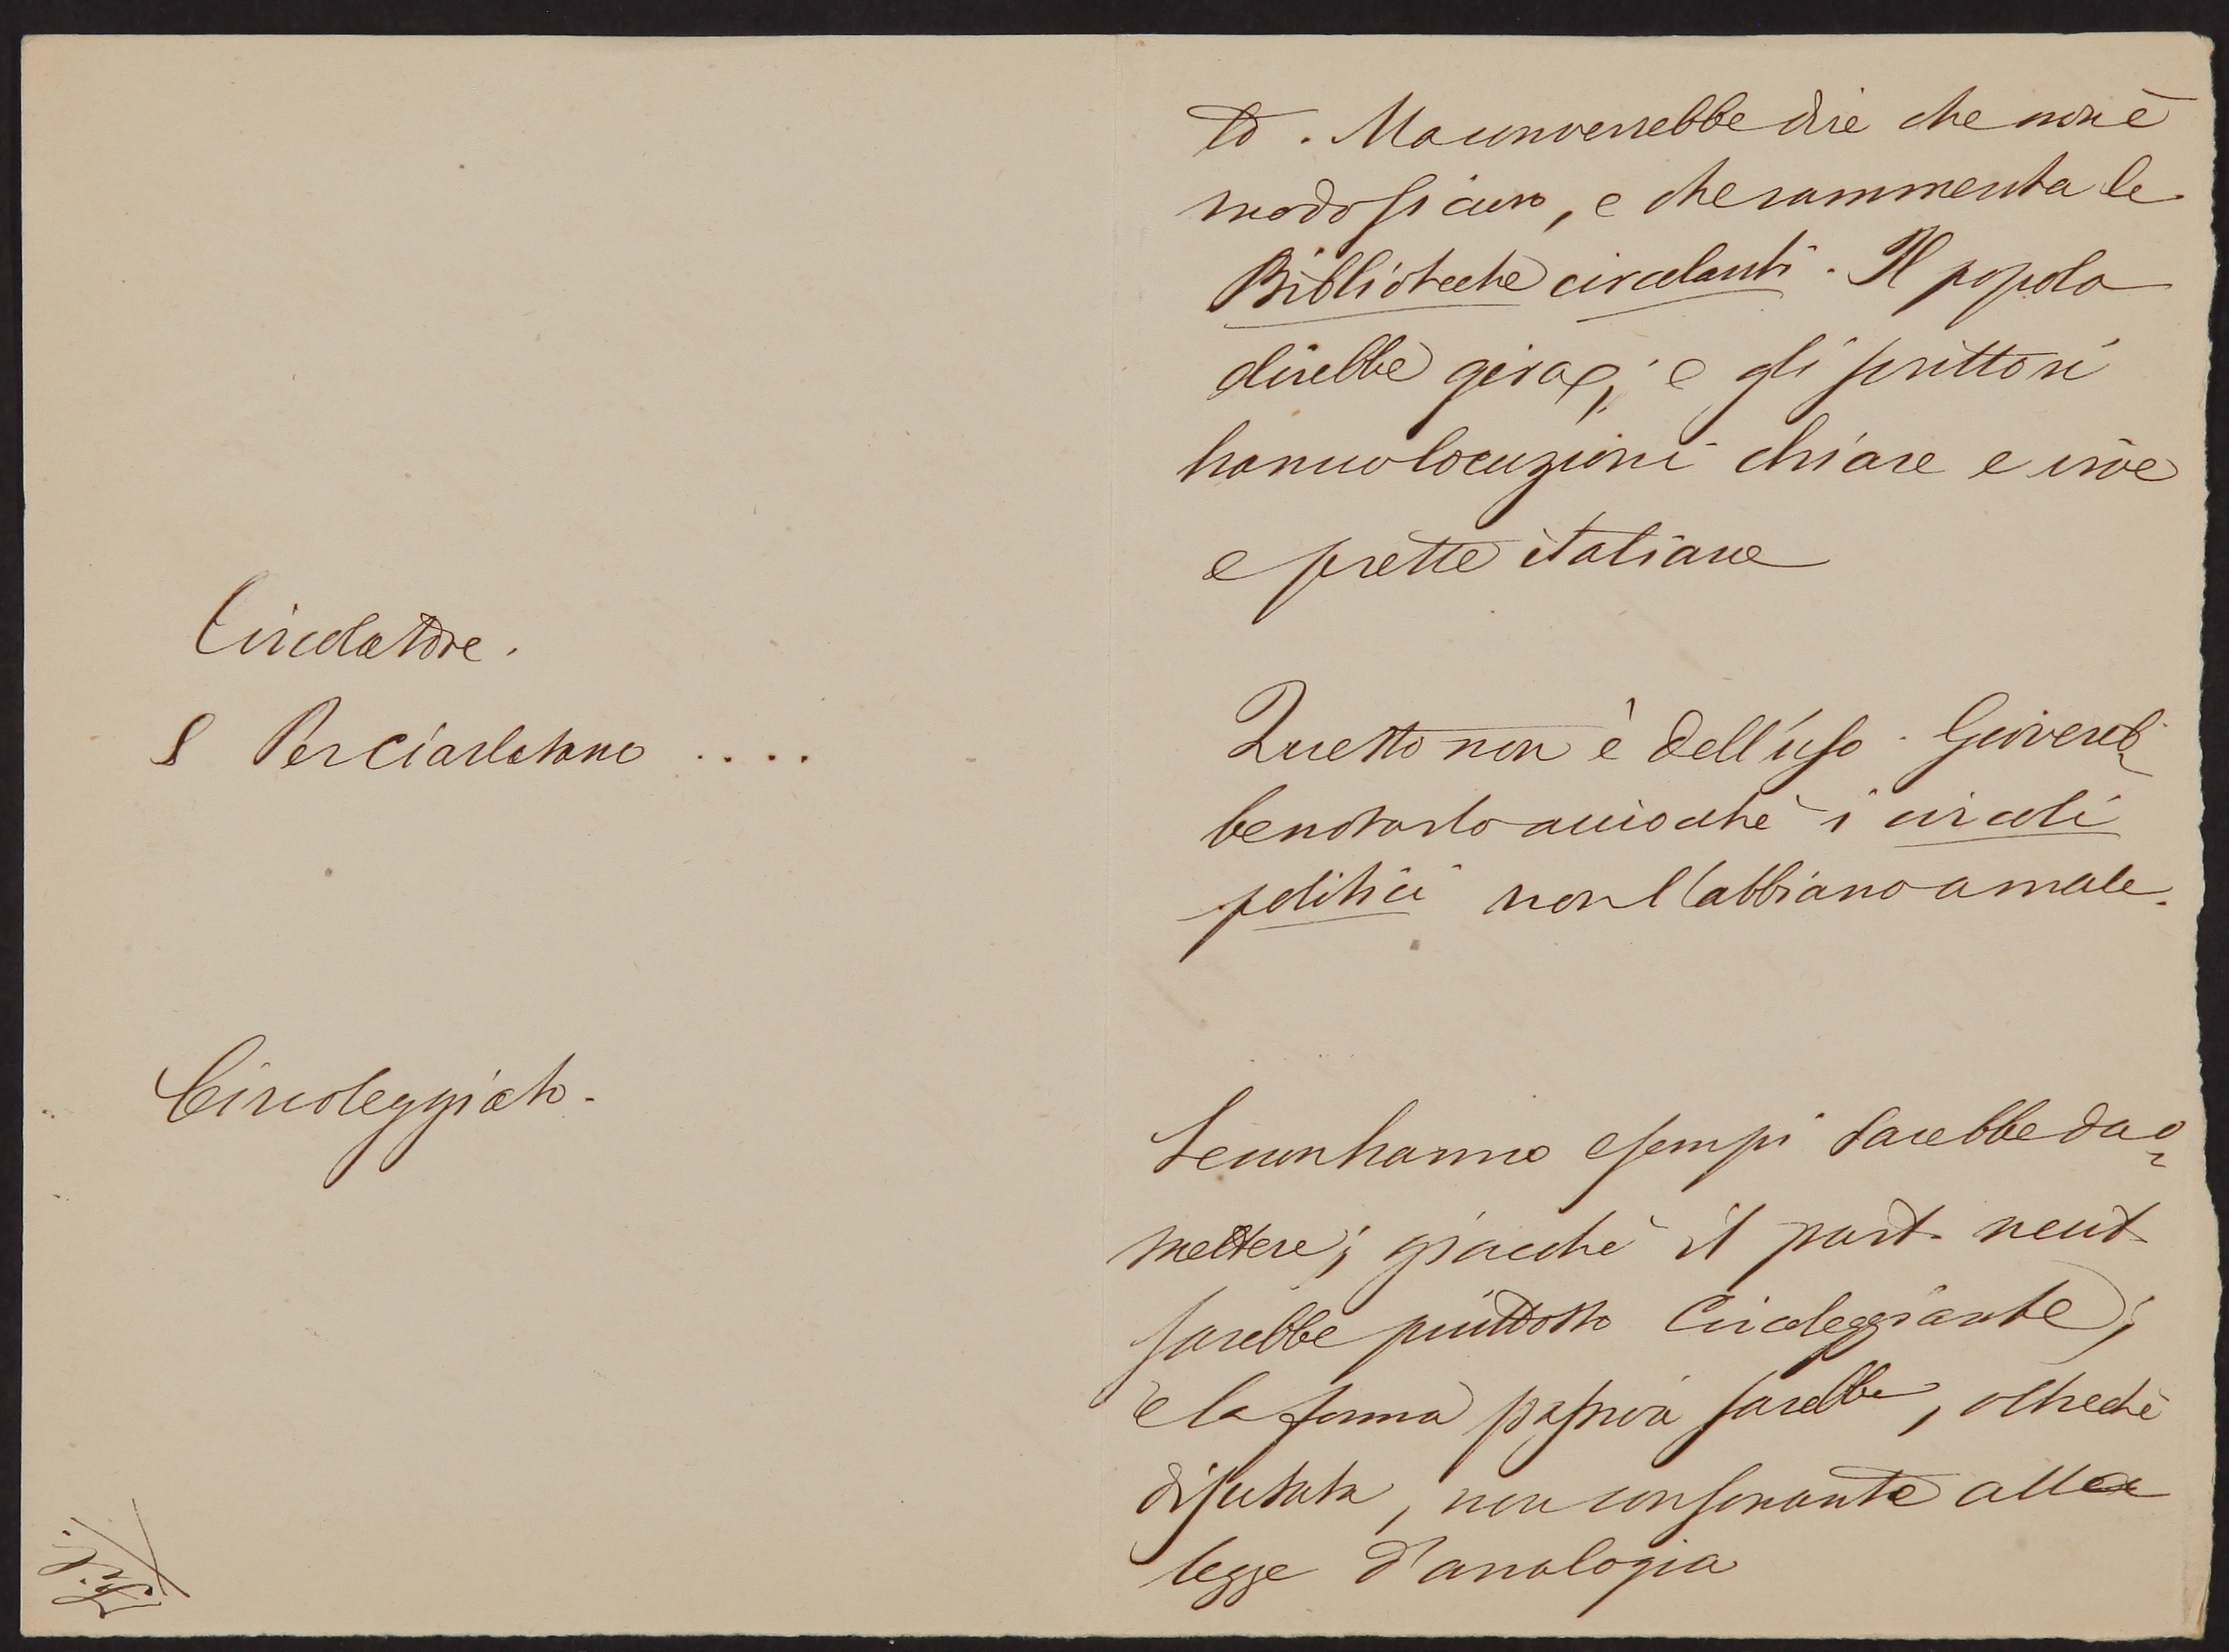 to. Ma converrebbe dire che non è
modo sicuro, e che rammenta le
Biblioteche circolanti. Il popolo
direbbe gira; e gli scrittori
hanno locuzioni chiare e vive
e prette italiane
Circolatore.
§ Per Ciarlatano ....
Questo non è dell'uso. Giovereb
be notarlo acciocchè i circoli
politici non l'abbiano a male.
Circoleggiato.
Se non hanno esempi sarebbe da o
mettere; giacchè il part. neut.
sarebbe piuttosto Circoleggiante;
e la forma passiva sarebbe, oltrechè
disusata, non consonante alla
legge d'analogia